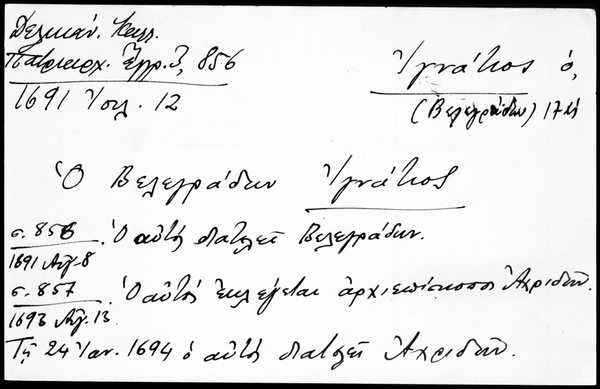 Δελικάν. Καλλ.
Πατριαρχ. Ἔγγρ. 3, 856
1691 Ἰουλ. 12
Ἰγνάτιος ὁ,
(Βελεγράδων) 17
Ὁ Βελεγράδων Ἰγνάτιος
σ. 856 . Ὁ αὐτός Βελεγράδων.
1691 Αὐγ. 8
σ. 857 . Ὁ αὐτός ἐκλέγεται ἀρχιεπίσκοπος Ἀχριδῶν.
1693 Αὐγ. 13
Τῇ 24 Ἰαν. 1694 ὁ αὐτός Ἀχριδῶν.